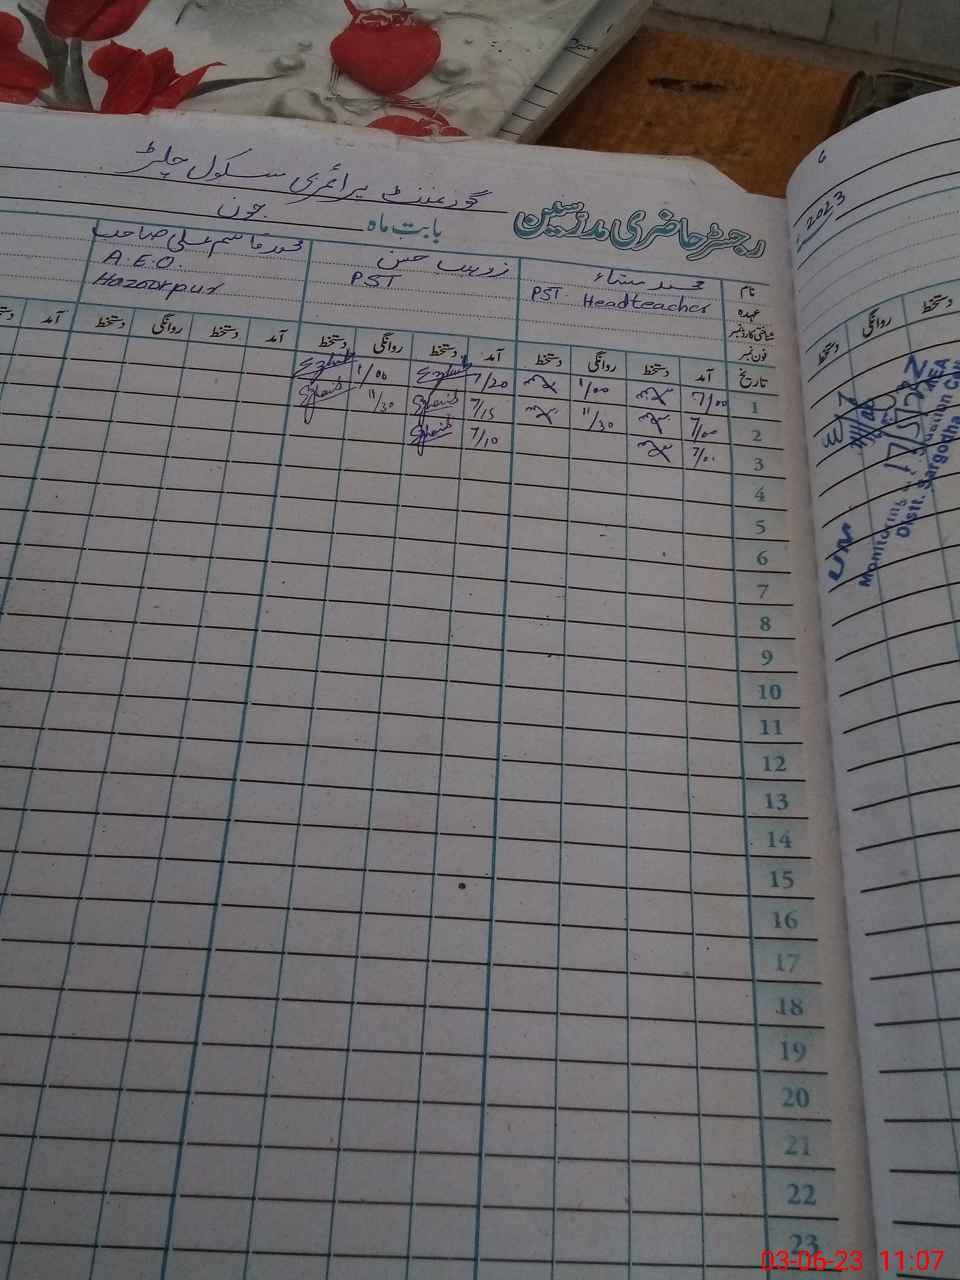 گورنمنٹ پرائمری سکول چلڑ
رجسٹر حاضری مدرسین
بابت ماہ جون
2023
نام
محمد قاسم علی صاحب
عہدہ PST Headteacher PST A.E.O.
Hazoorpur
شناختی کارڈ نمبر
فون نمبر
تاریخ آمد دستخط روانگی دستخط آمد دستخط روانگی دستخط آمد دستخط روانگی دستخط آمد
1 7/00 1/00 7/20 1/00
2 7/00 11/30 7/15 11/30
3 7/00 7/10
4
5
6
7
8
9
10
11
12
13
14
15
16
17
18
19
20
21
22
23
دستخط روانگی دستخط
Monitoring
Distt. Sargodha
03-06-23 11:07